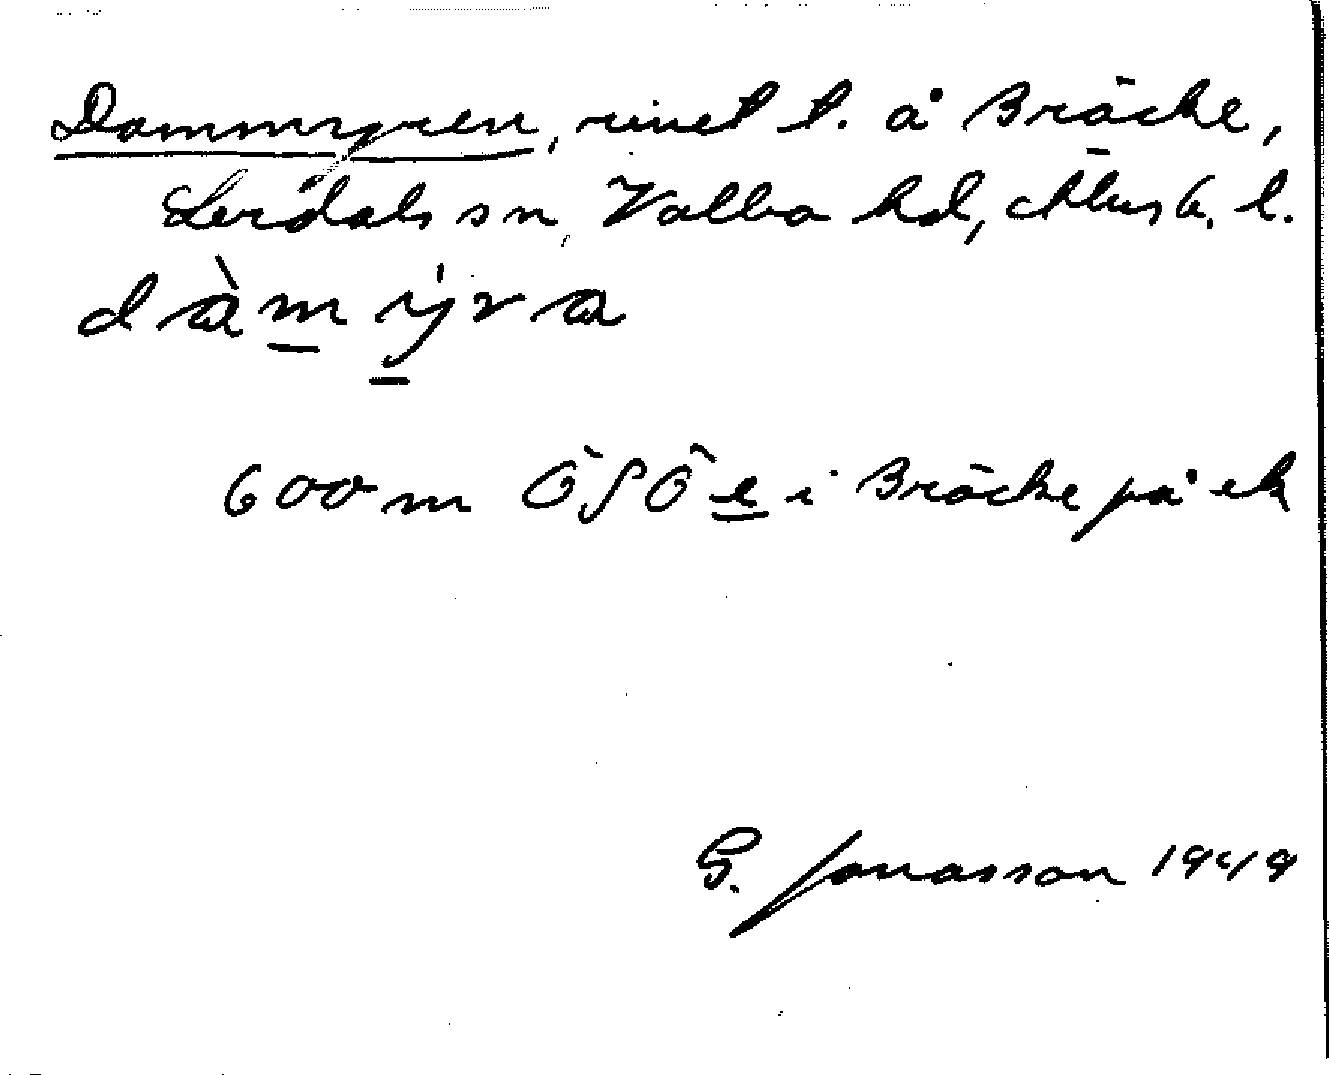 Dammyren, rivet t. å Bräcke,
Lerdals sn, Valbo hd, Älvsb. l.
dàmýra
600 m ÖSÖ e i Bräcke på ek
G. Jonasson 1949